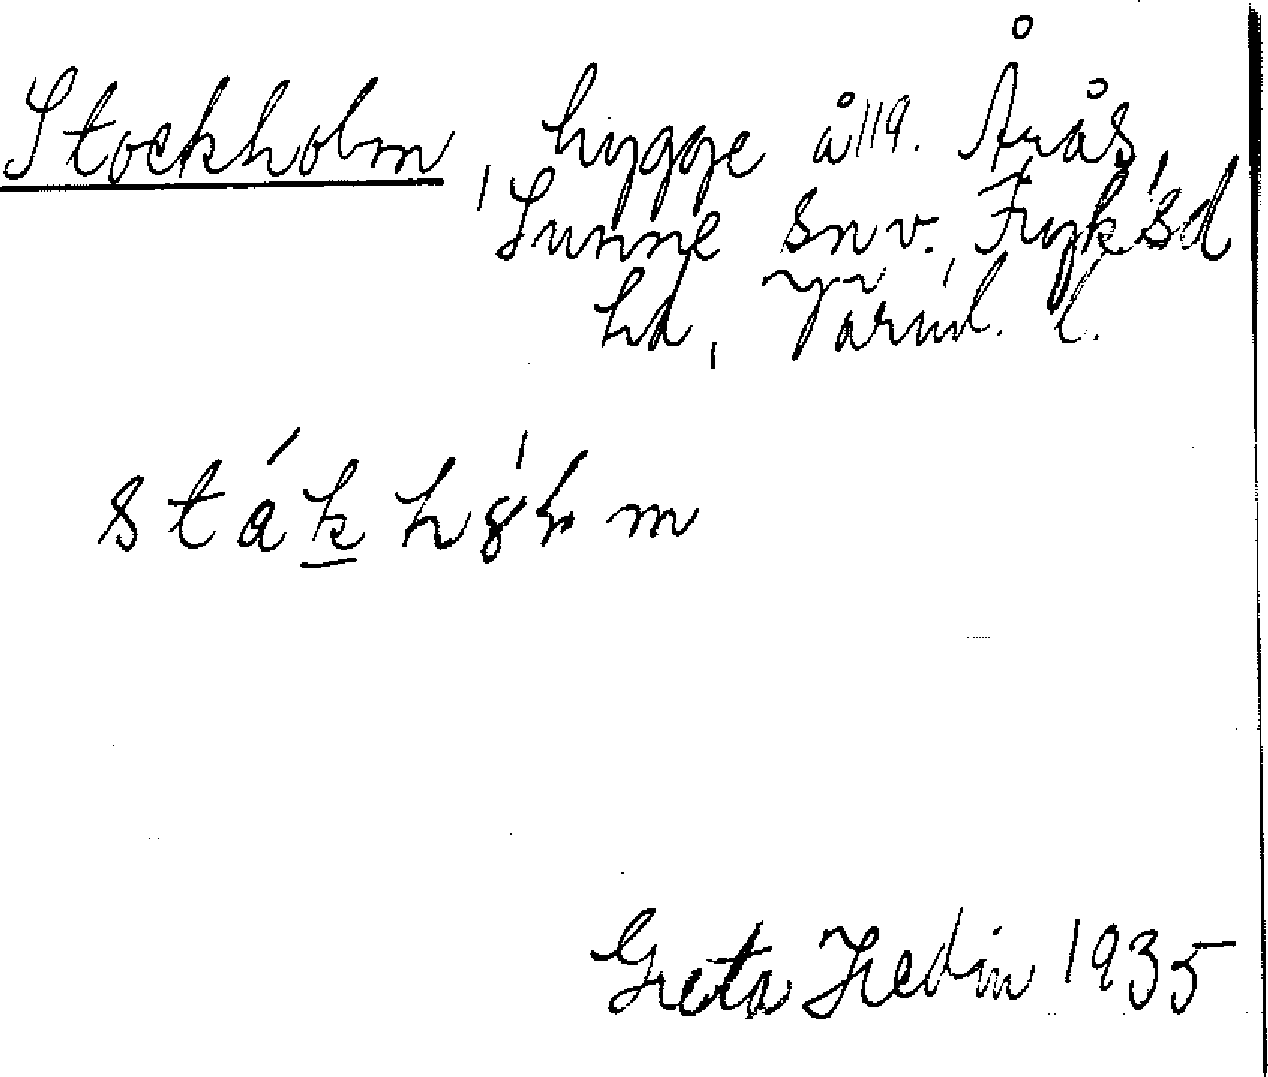 Stockholm, hygge å 119. Årås,
Sunne snv. Fryksd
hd, Värml. l.
stákhȣ́ɫm
Greta Hedin 1935